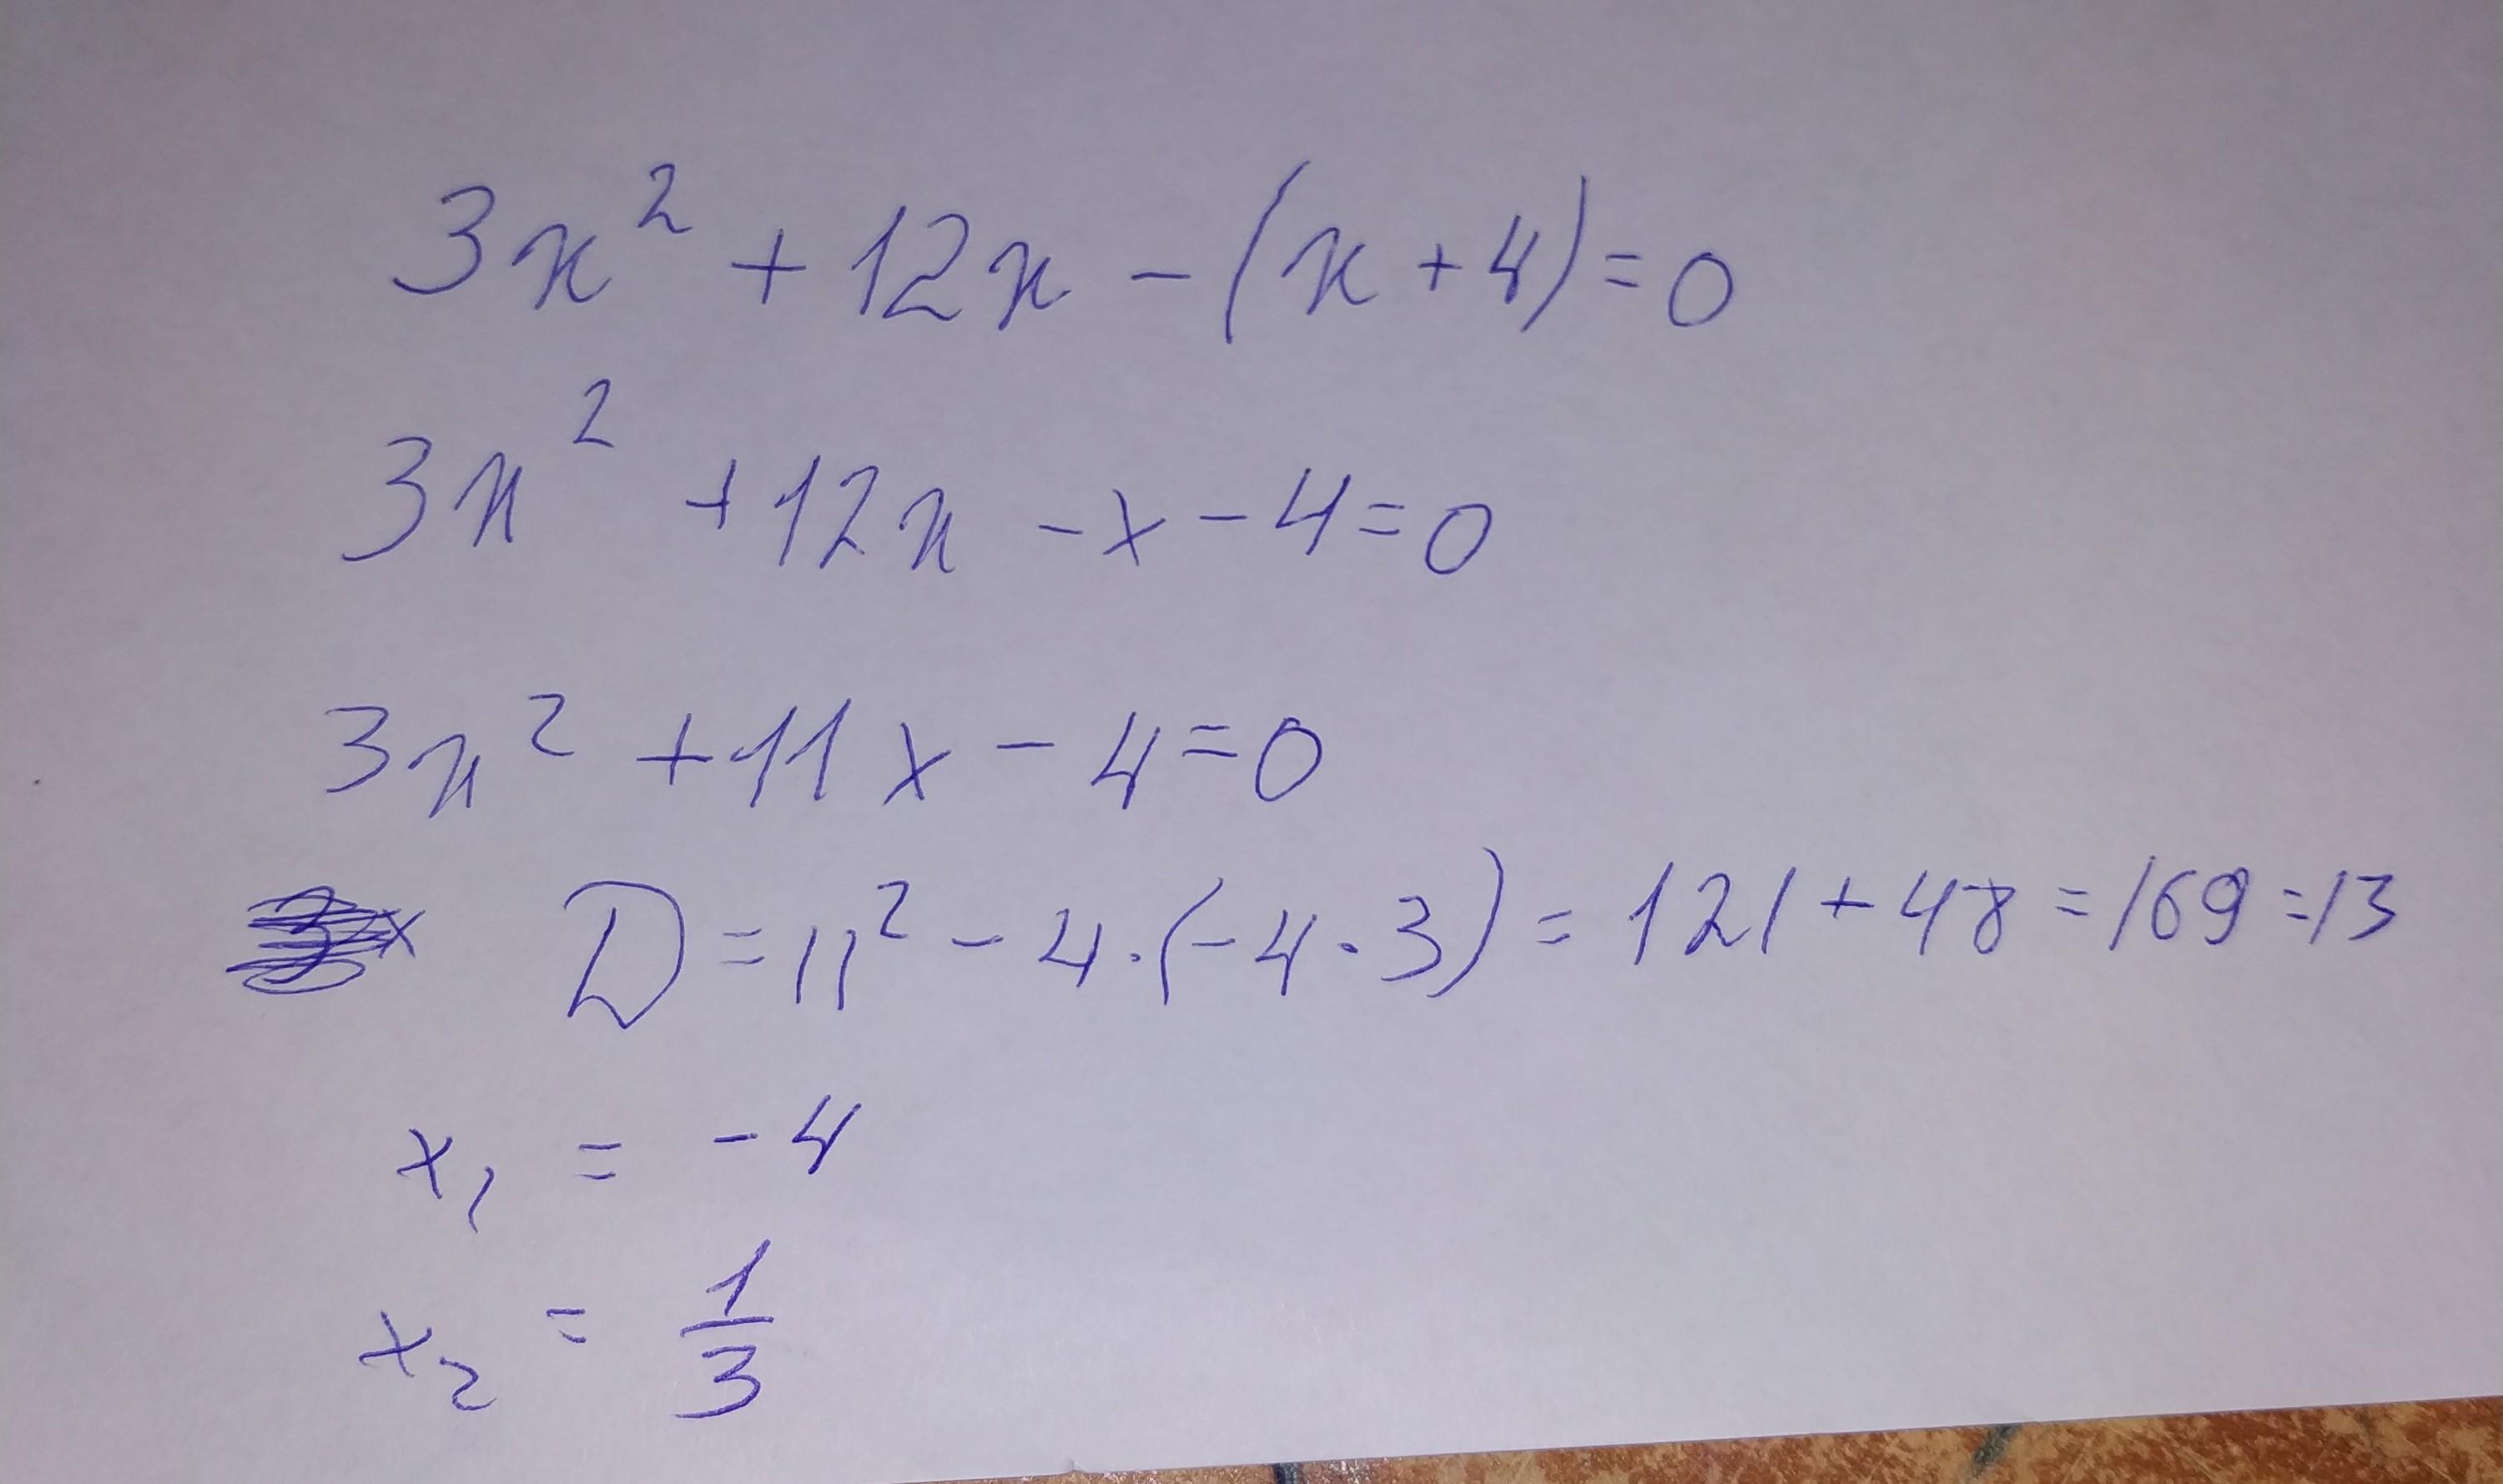 3x² + 12x - (x + 4) = 0
3x² + 12x - x - 4 = 0
3x² + 11x - 4 = 0
D = 11² - 4 · (-4 · 3) = 121 + 48 = 169 = 13
x₁ = -4
x₂ = 1/3